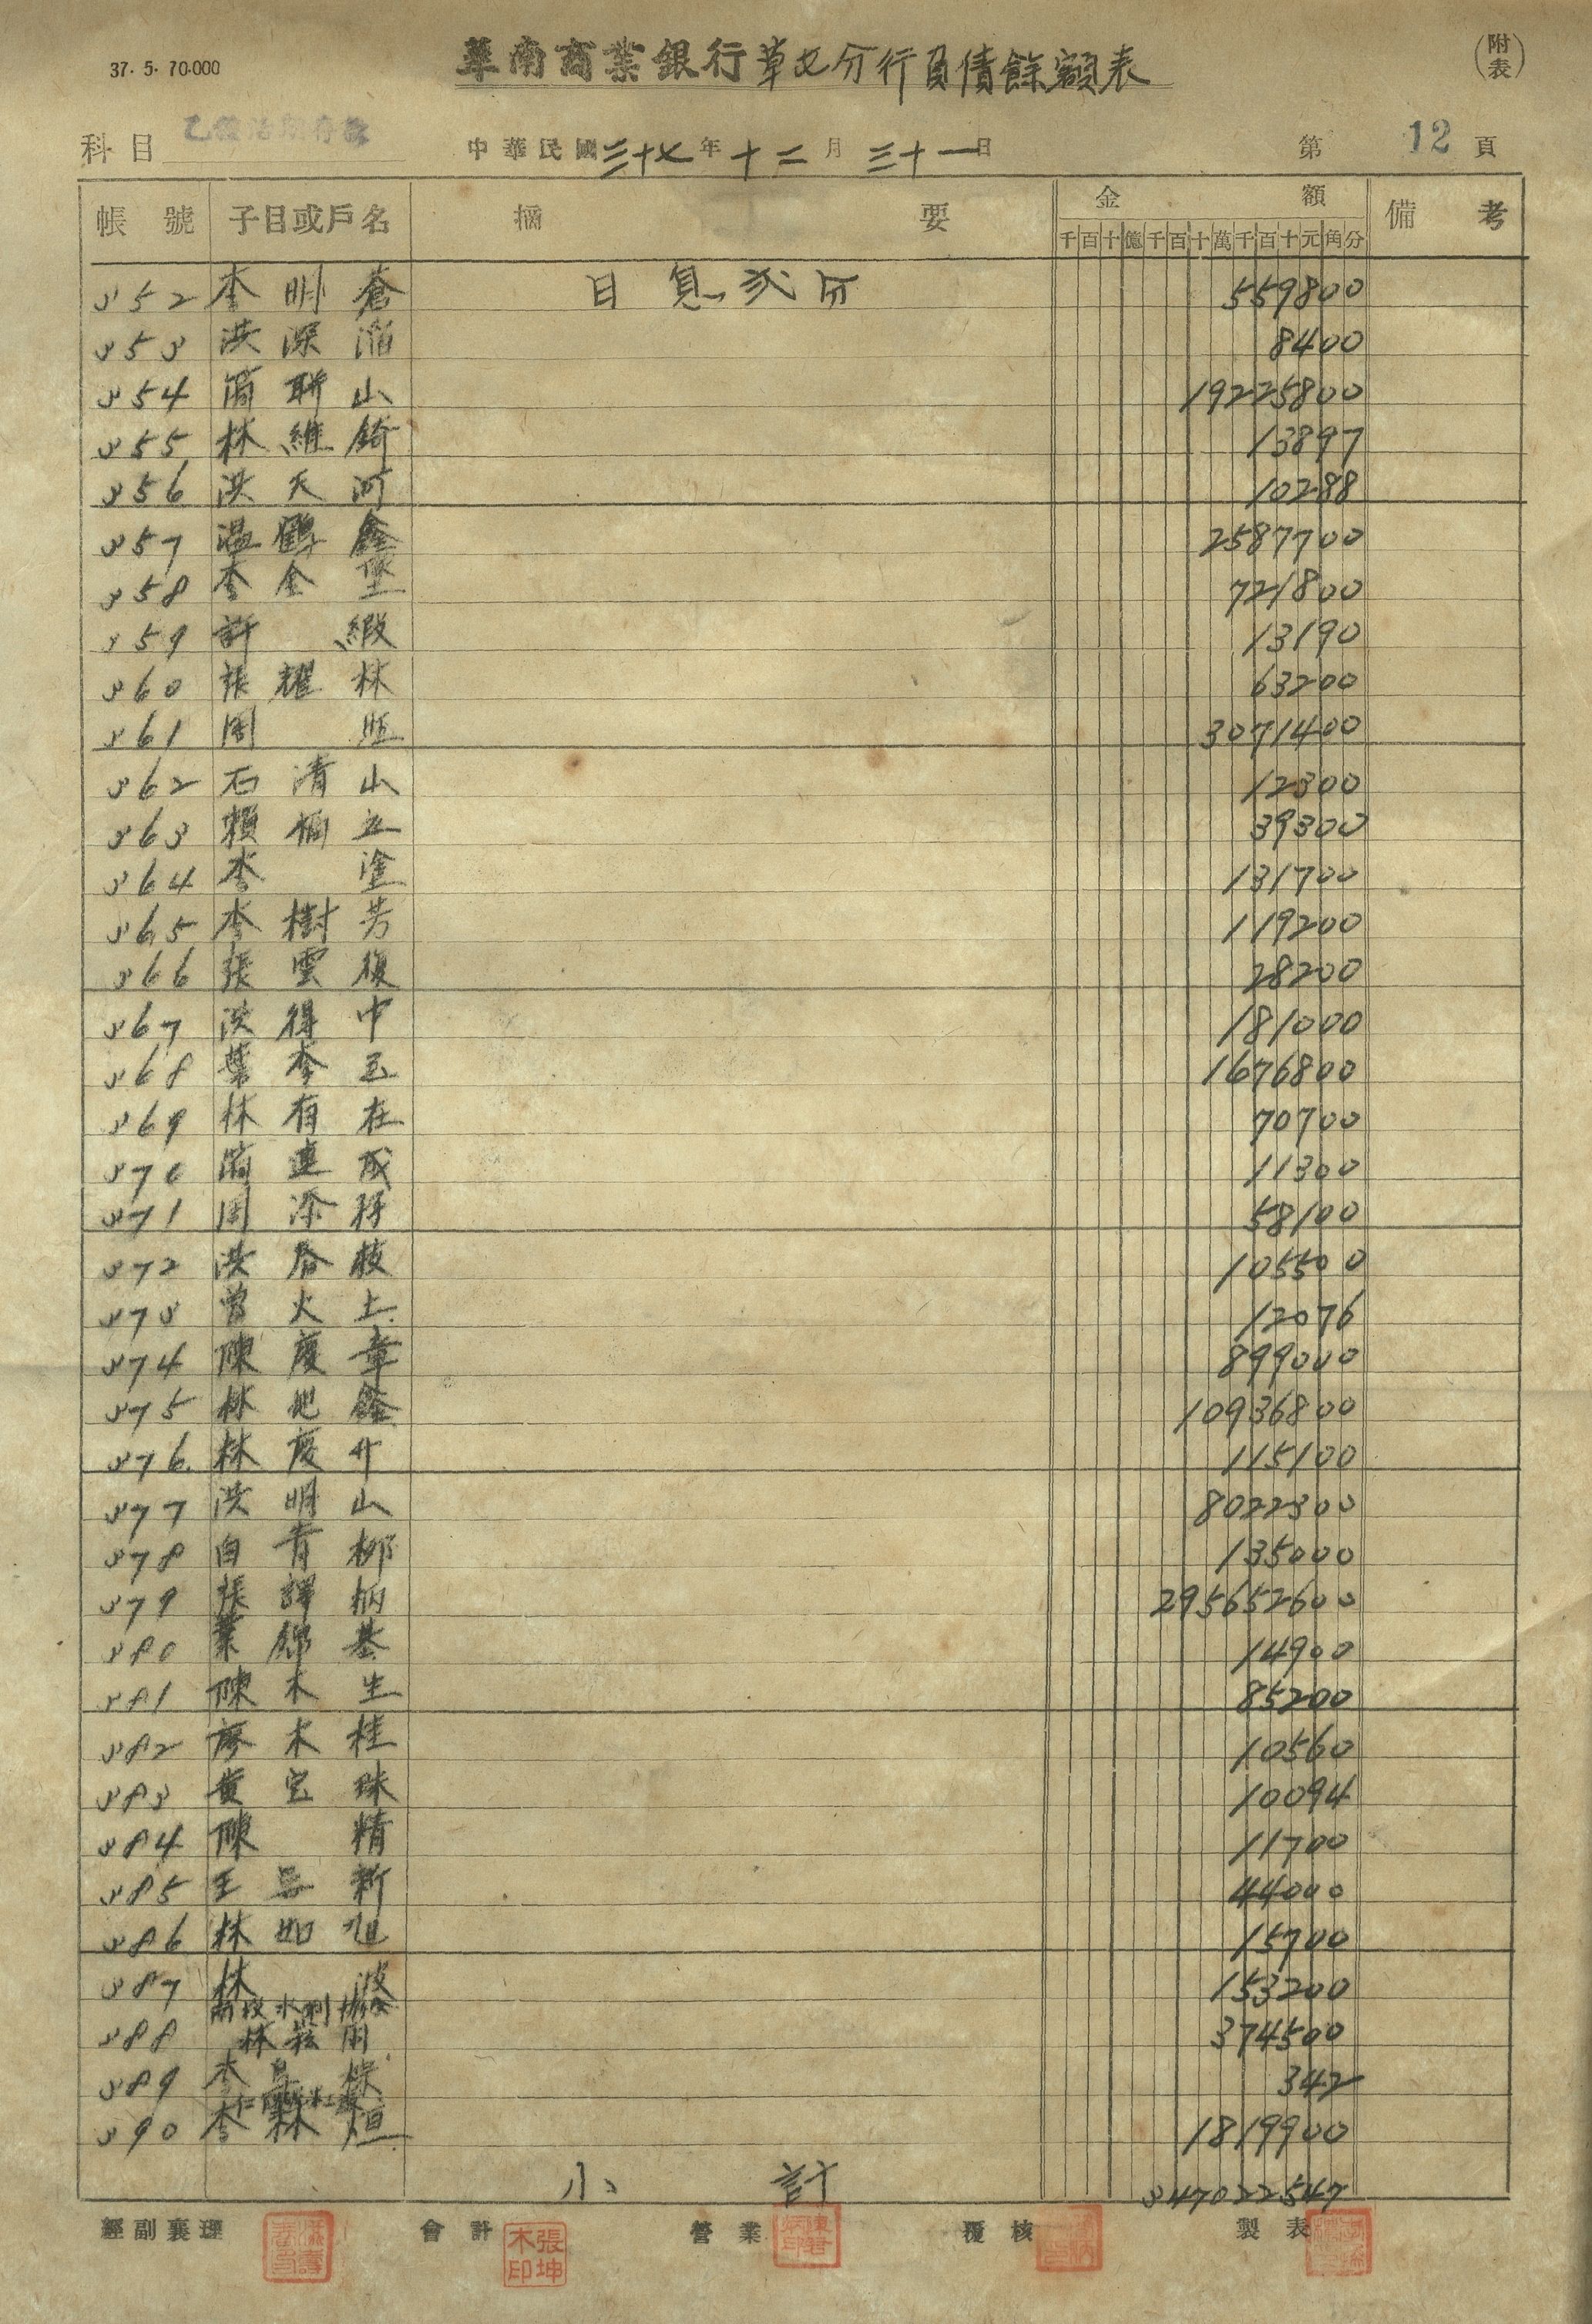 37·5·70·000
華南商業銀行草屯分行負債餘額表
(附表)
科目 乙種活期存款 中華民國三十七年十二月三十一日 第12頁
帳號 子目或戶名 摘要 金額 備考
千百十億千百十萬千百十元角分
352 李明蒼 日息弍分 559800
353 洪深 8400
354 簡聯山 19225800
355 林維錡 13897
356 洪天河 10288
357 溫鶴鑫 2587700
358 李金堡 721800
359 許緞 13190
360 張耀林 63200
361 周 3071400
362 石清山 12300
363 賴 39300
364 李塗 131700
365 李樹芳 119200
366 張雲復 28200
367 洪得中 181000
368 葉李玉 1676800
369 林有在 70700
370 連成 11300
371 周添 58100
372 洪啓枝 105500
373 曾火土 12076
374 陳慶章 899000
375 林地 10936800
376 林慶升 115100
377 洪明山 8022300
378 白青柳 135000
379 張 295652600
380 葉錦基 14900
381 陳木生 85200
382 廖木桂 10560
383 黃宝珠 10094
384 陳精 11700
385 王新 44000
386 林如旭 15700
387 林波 153200
388 水利 林 374500
389 李 342
390 李林烜 1819900
小計 347022547
經副襄理 會計 張坤木印 營業 覆核 製表